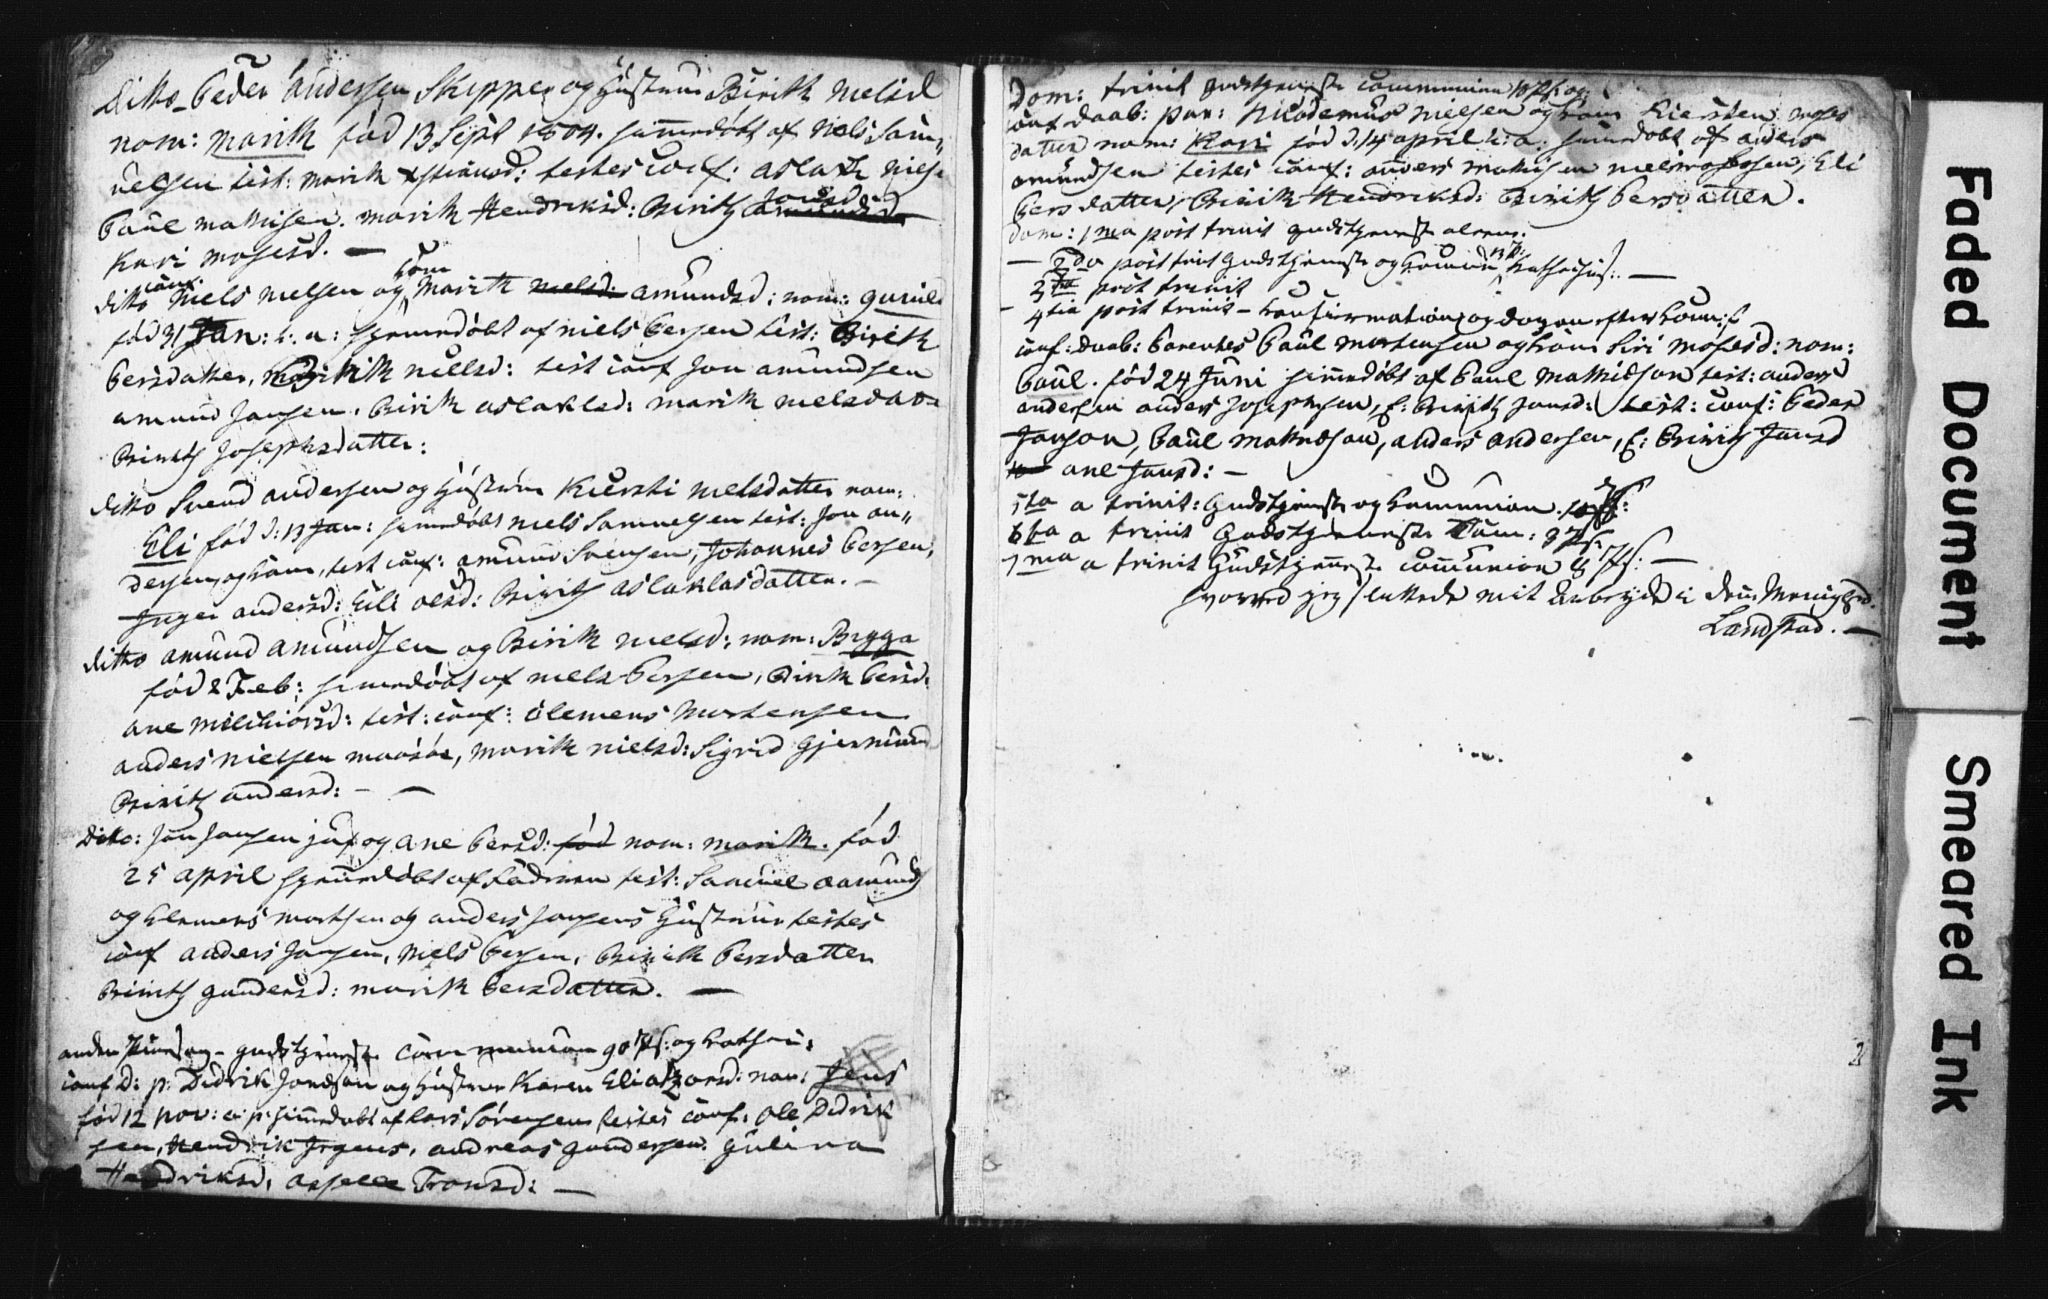 ditto Peder Andersen Skipper og Hustrue Birith Nielsd
nom: Marith fød 13 Sept 1804. hjemdøbt af Niels Sam„
uelsen test: Marith testes conf: Aslach Niels
Povel Mathisen. Marith Hendriksd: Birith Jonsd
Kari Mosesd. —
ditto Niels Nielsen og Kone Marith Amundsd: nom: Guruld
fød 31 Jan: h: a: hjemdøbt af Niels Persen test: Birith
Persdatter, Birith Nielsd: test conf Jon Amundsen
Amund Jonsen. Birith Aslaksd: Marith Nielsdat
Birith Josephsdatter:
ditto Svend Andersen og Hustrue Kiersti Nielsdatter nom:
Eli fød d: 13 Jan: hjemdøbt Niels Samuelsen test: Jon An„
dersen og Kone, test conf: Amund Svensen, Johannes Persen,
Inger Andersd: Eli Olsd: Birith Aslaksdatter. —
ditto Amund Amundsen og Birith Nielsd: nom: Bigga
fød 2 Feb: hjemdøbt af Niels Persen, Birith Persd:
Ane Melchiorsd: test: conf: Clemens Mortensen
Anders Nielsen, Marith Nielsd: Sigrid Gjermund
Birith Andersd: — —
Ditto: Jon Jonsen og Ane Persd: fød nom: Marith. fød
25 April hjemdøbt af Faderen test: Samuel Aamunds
og Clemens Mortsen og Anders Jonsens Hustrue testes
conf Anders Jonsen, Niels Persen, Birith Persdatter
Birith Gundersd: Marith Persdatter. —
anden Pintsdag - Gudstjeneste Communion 90 Ps: og
conf D: p: Didrik Jondsøn og Hustrue Karen Eliazarsd: nom: Jens
fød 12 Nov: a: p: hjemdøbt af Lars Sørensen testes conf: Ole Didrik
sen, Hendrik Irgens, Andreas Gundersen. Gulina
Hendriksd, Tronsd: —
Dom: trinit Gudstjeneste Communion 10 Ps: og
conf Daab: par: Nicodemus Nielsen og Kone Kiersten Moses
datter nom: Kari fød d: 14 April h: a: hjemdøbt af Anders
Amundsen testes conf: Anders Mathisen, Eli
Persdatter, Birith Hendriksd: Birith Persdatter.
Dom: 1ma post trinit Gudstjeneste alene.
— 2da post trinit Gudstjeneste og Comun
3tia post trinit
— 4tia post trinit - Confirmation og dagen efter Comm:
conf: Daab: Parentes Paul Mortensen og Kone Siri Mosesd: nom:
Paul. fød 24 Juni hjemdøbt af Paul Mathisson test: Anders
Andersen Anders Josephsen, E: Birith Jonsd: test: conf: Peder
Jonson, Paul Mathison, Anders Andersen, E: Birith Jonsd
Ane Jonsd: —
5ta a trinit: Gudstjeneste og Communion.
6ta a trinit Gudstjeneste Com:
7ma a trinit Gudstjeneste Communion —
hvorved jeg sluttede mit Arbeyde i den Menighed.
Landstad. —
Faded Document
Smeared Ink